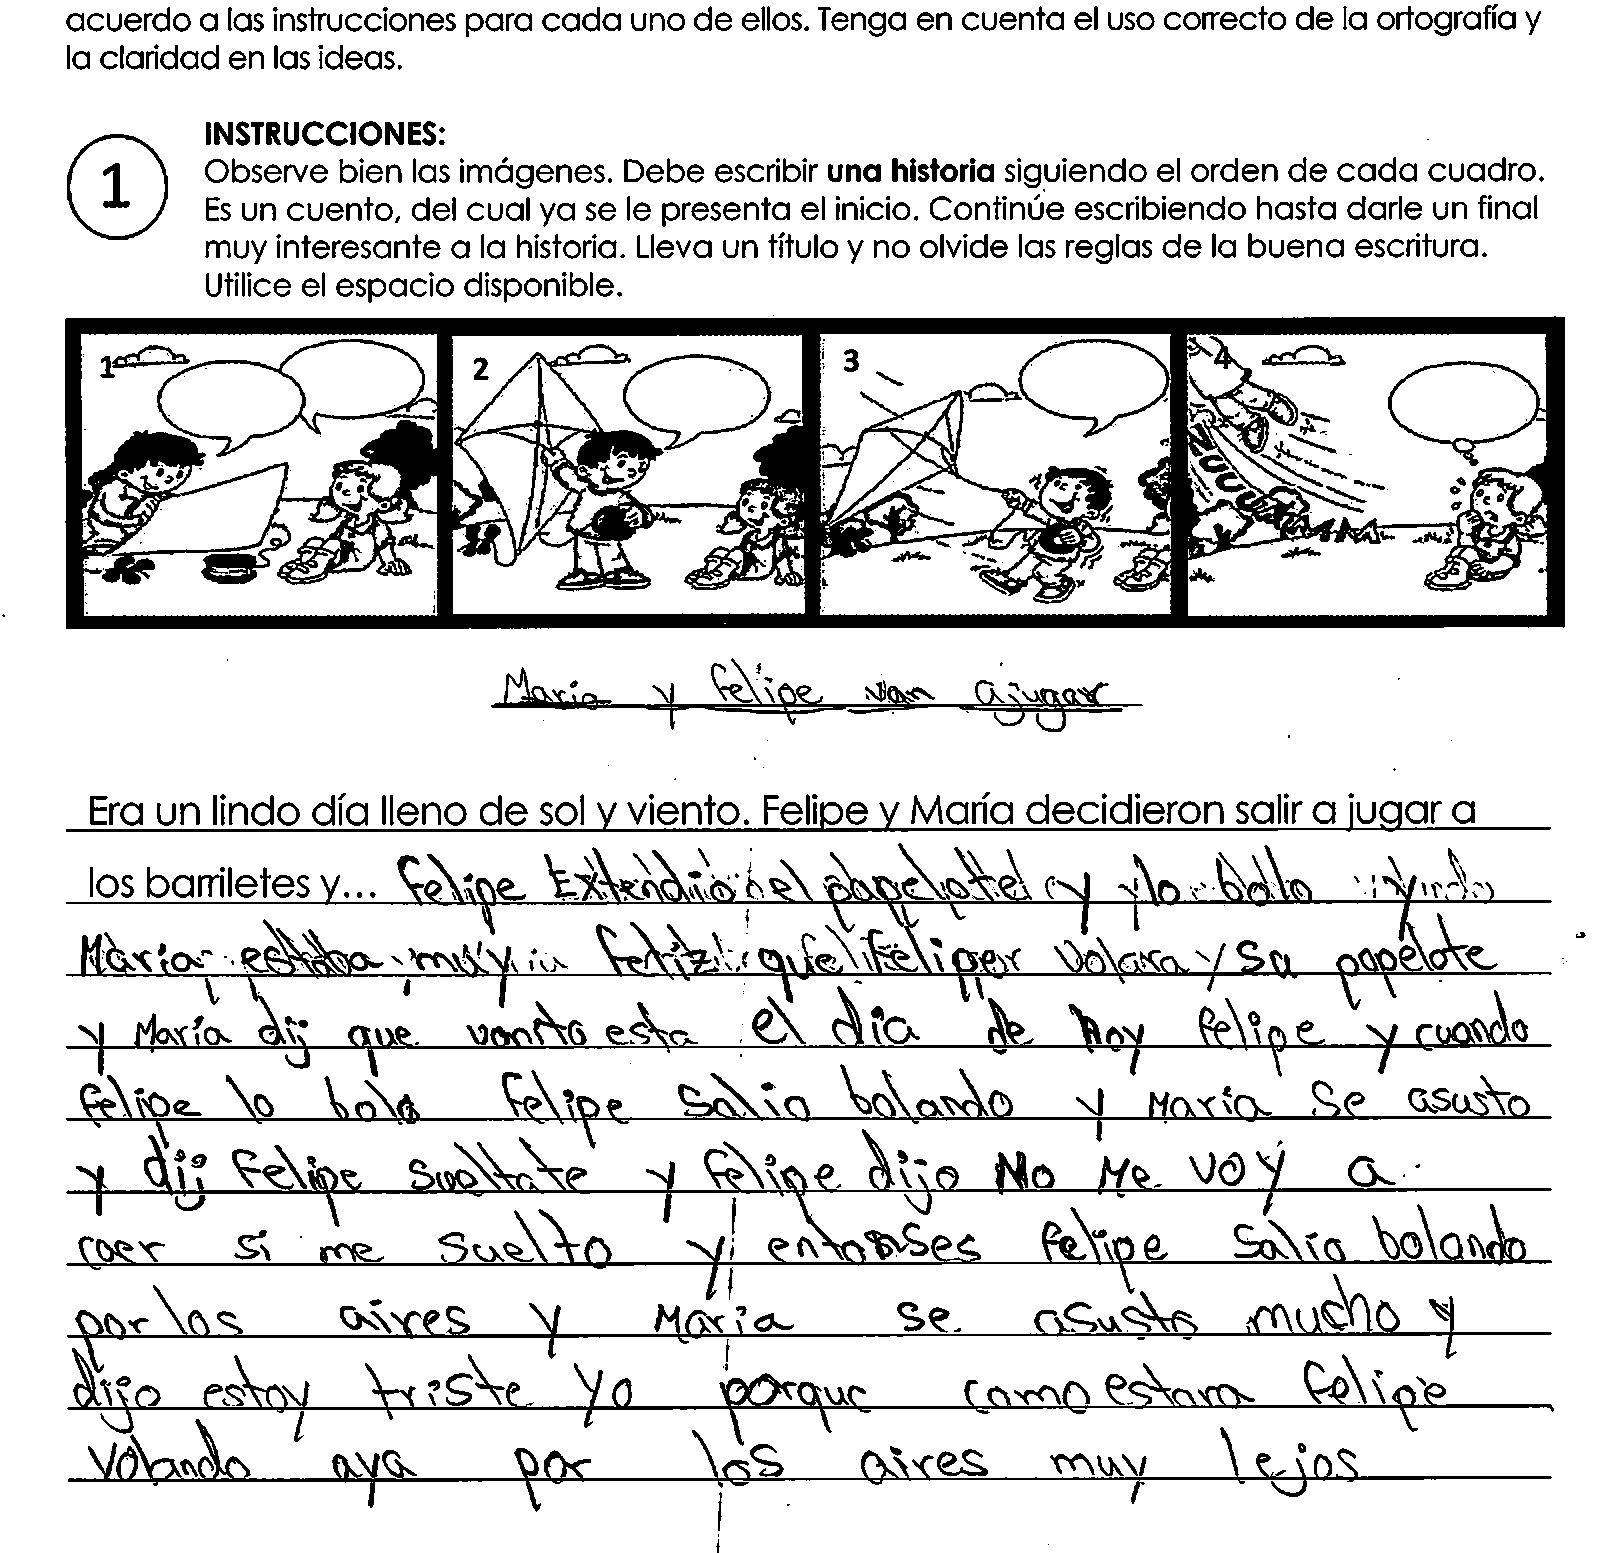 acuerdo a las instrucciones para cada uno de ellos. Tenga en cuenta el uso correcto de la ortografía y
la claridad en las ideas.
1
INSTRUCCIONES:
Observe bien las imágenes. Debe escribir una historia siguiendo el orden de cada cuadro.
Es un cuento, del cual ya se le presenta el inicio. Continúe escribiendo hasta darle un final
muy interesante a la historia. Lleva un título y no olvide las reglas de la buena escritura.
Utilice el espacio disponible.
1 2 3 4
Maria y felipe van ajugar
Era un lindo día lleno de sol y viento. Felipe y María decidieron salir a jugar a
los barriletes y... felipe Extendio el papelote y lo bolo y
Maria estaba muy feliz que Feliper volara su papelote
y María dij que vonito esta el dia de hoy felipe y cuando
felipe lo bolo felipe Salio bolando y María Se asusto
y dij Felipe sueltate y felipe dijo No Me voy a
caer si me suelto y entonses felipe Salio bolando
por los aires y Maria se asusto mucho y
dijo estoy triste yo porque como estara felipe
volando aya por los aires muy lejos